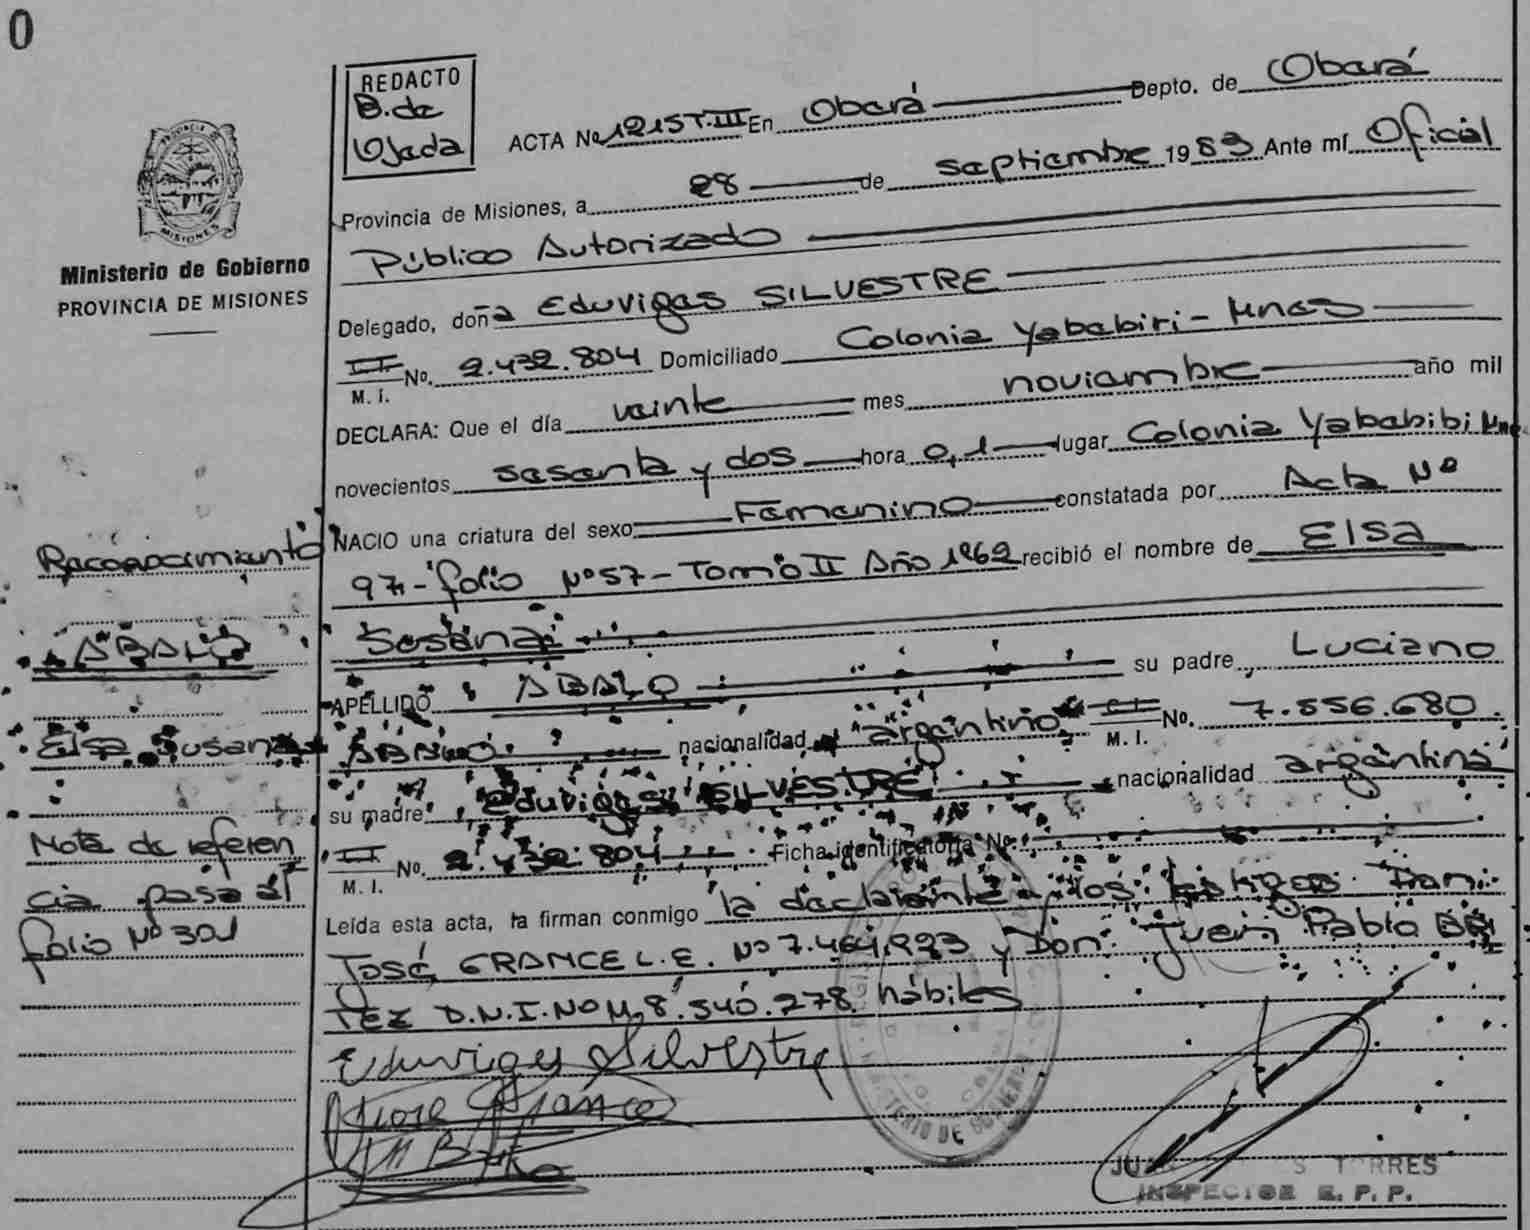 0
REDACTO
B. de
Ojeda
ACTA No 1215 T. III En Oberá Depto. de Oberá
Provincia de Misiones, a 28 de septiembre 1983 Ante mí Oficial
Público Autorizado
Delegado, doña Eduviges SILVESTRE
No. 2.432.804 Domiciliado Colonia Yababiri - Mnes
M. I.
DECLARA: Que el día veinte mes noviembre año mil
novecientos sesenta y dos hora 0,1 lugar Colonia Yababibi Mnes
NACIO una criatura del sexo Femenino constatada por Acta Nº
97 - folio Nº 57 - Tomo II Año 1962 recibió el nombre de Elsa
Susana
APELLIDO ABALO su padre Luciano
ABALO nacionalidad argentino No. 7.556.680
M. I.
su madre Eduviges SILVESTRE nacionalidad argentina
No. 2.432.804 Ficha identificatoria No.
M. I.
Leída esta acta, la firman conmigo la declarante y los testigos
José GRANCE L.E. Nº 7.464.993 y Don Juan Pablo BRI
TEZ D.N.I. Nº M. 8.540.278 hábiles
Eduviges Silvestre
PROVINCIA DE
MISIONES
Ministerio de Gobierno
PROVINCIA DE MISIONES
Reconocimiento
ABALO
Elsa Susana
Nota de referen
cia pasa al
folio Nº 301
MINISTERIO DE GOBIERNO
TORRES
INSPECTOR R. P. P.